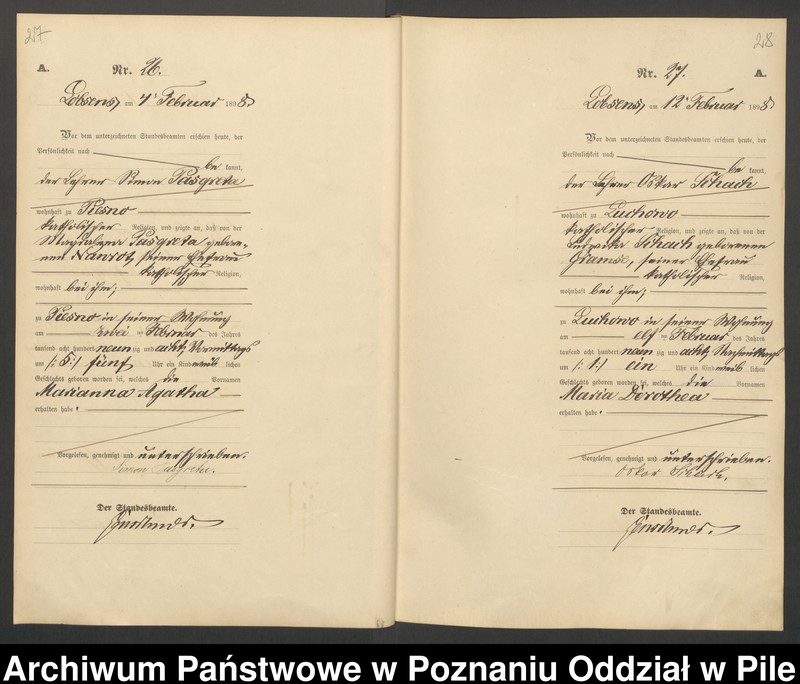 27
A.
Nr. 26.
Lobsens, am 4ᵗ Februar 1898
Vor dem unterzeichneten Standesbeamten erschien heute, der
Persönlichkeit nach
be kannt,
der Lehrer Simon Pasgreta
wohnhaft zu Piesno
katholischer Religion, und zeigte an, daß von der
Magdalena Pasgreta gebore-
nen Nawrot, seiner Ehefrau
katholischer Religion,
wohnhaft bei ihm;
zu Piesno in seiner Wohnung
am zwei ten Februar des Jahres
tausend acht hundert neun zig und acht, Vormittags
um /: 5 :/ fünf Uhr ein Kind weib lichen
Geschlechts geboren worden sei, welches die Vornamen
Marianna Agatha
erhalten habe.
Vorgelesen, genehmigt und unterschrieben.
Simon Pasgreta.
Der Standesbeamte.
28
Nr. 27.
A.
Lobsens, am 12ᵗ Februar 1898
Vor dem unterzeichneten Standesbeamten erschien heute, der
Persönlichkeit nach
be kannt,
der Lehrer Oskar Schach
wohnhaft zu Luchowo
katholischer Religion, und zeigte an, daß von der
Schach geborenen
Gramse, seiner Ehefrau
katholischer Religion,
wohnhaft bei ihm;
zu Luchowo in seiner Wohnung
am elf ten Februar des Jahres
tausend acht hundert neun zig und acht, Nachmittags
um /: 1 :/ ein Uhr ein Kind weib lichen
Geschlechts geboren worden sei, welches die Vornamen
Maria Dorothea
erhalten habe.
Vorgelesen, genehmigt und unterschrieben.
Oskar Schach.
Der Standesbeamte.
Archiwum Państwowe w Poznaniu Oddział w Pile